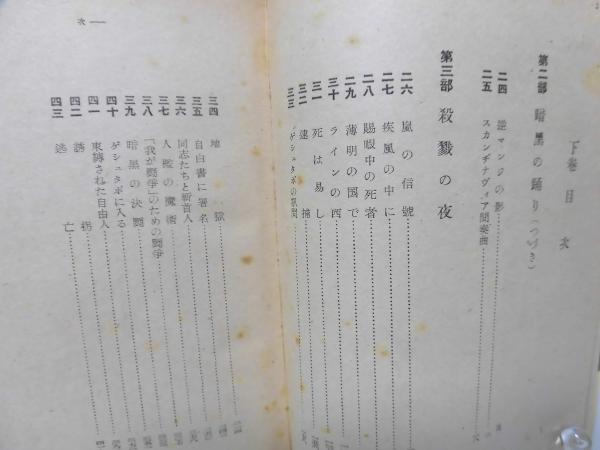 下卷目次
第二部 暗黒の踊り(つづき)
二四 逆マンジの影
二五 スカンヂナヴィア間奏曲
第三部 殺戮の夜
二六 嵐の信號
二七 疾風の中に
二八 賜暇中の死者
二九 薄明の国で
三十 ラインの西
三一 死は易し
三二 逮捕
三三 ゲシュタポの訊問
三四 地獄
三五 自白書に署名
三六 同志たちと斬首人
三七 人艦の魔術
三八 「我が闘争」のための闘爭
三九 暗黒の決闘
四十 ゲシュタポに入る
四一 束縛された自由人
四二 誘拐
四三 逃亡
次